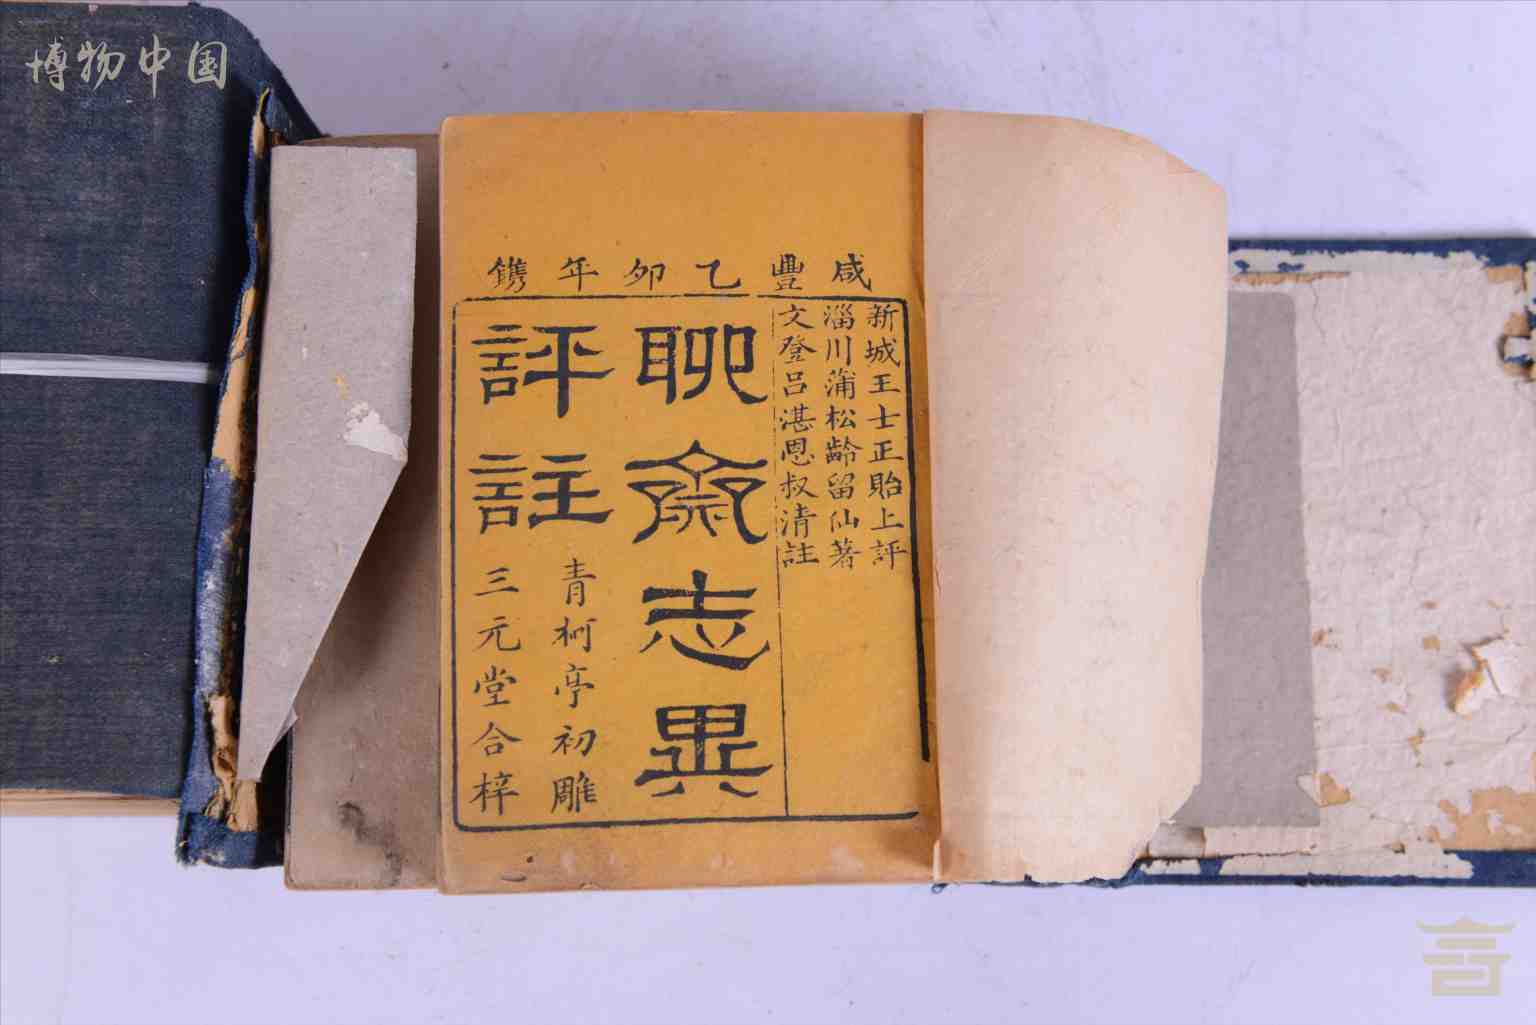 博物中国
咸豐乙卯年鐫
新城王士正貽上評
淄川蒲松齡留仙著
文登呂湛恩叔清註
聊齋志異
評註
青柯亭初雕
三元堂合梓